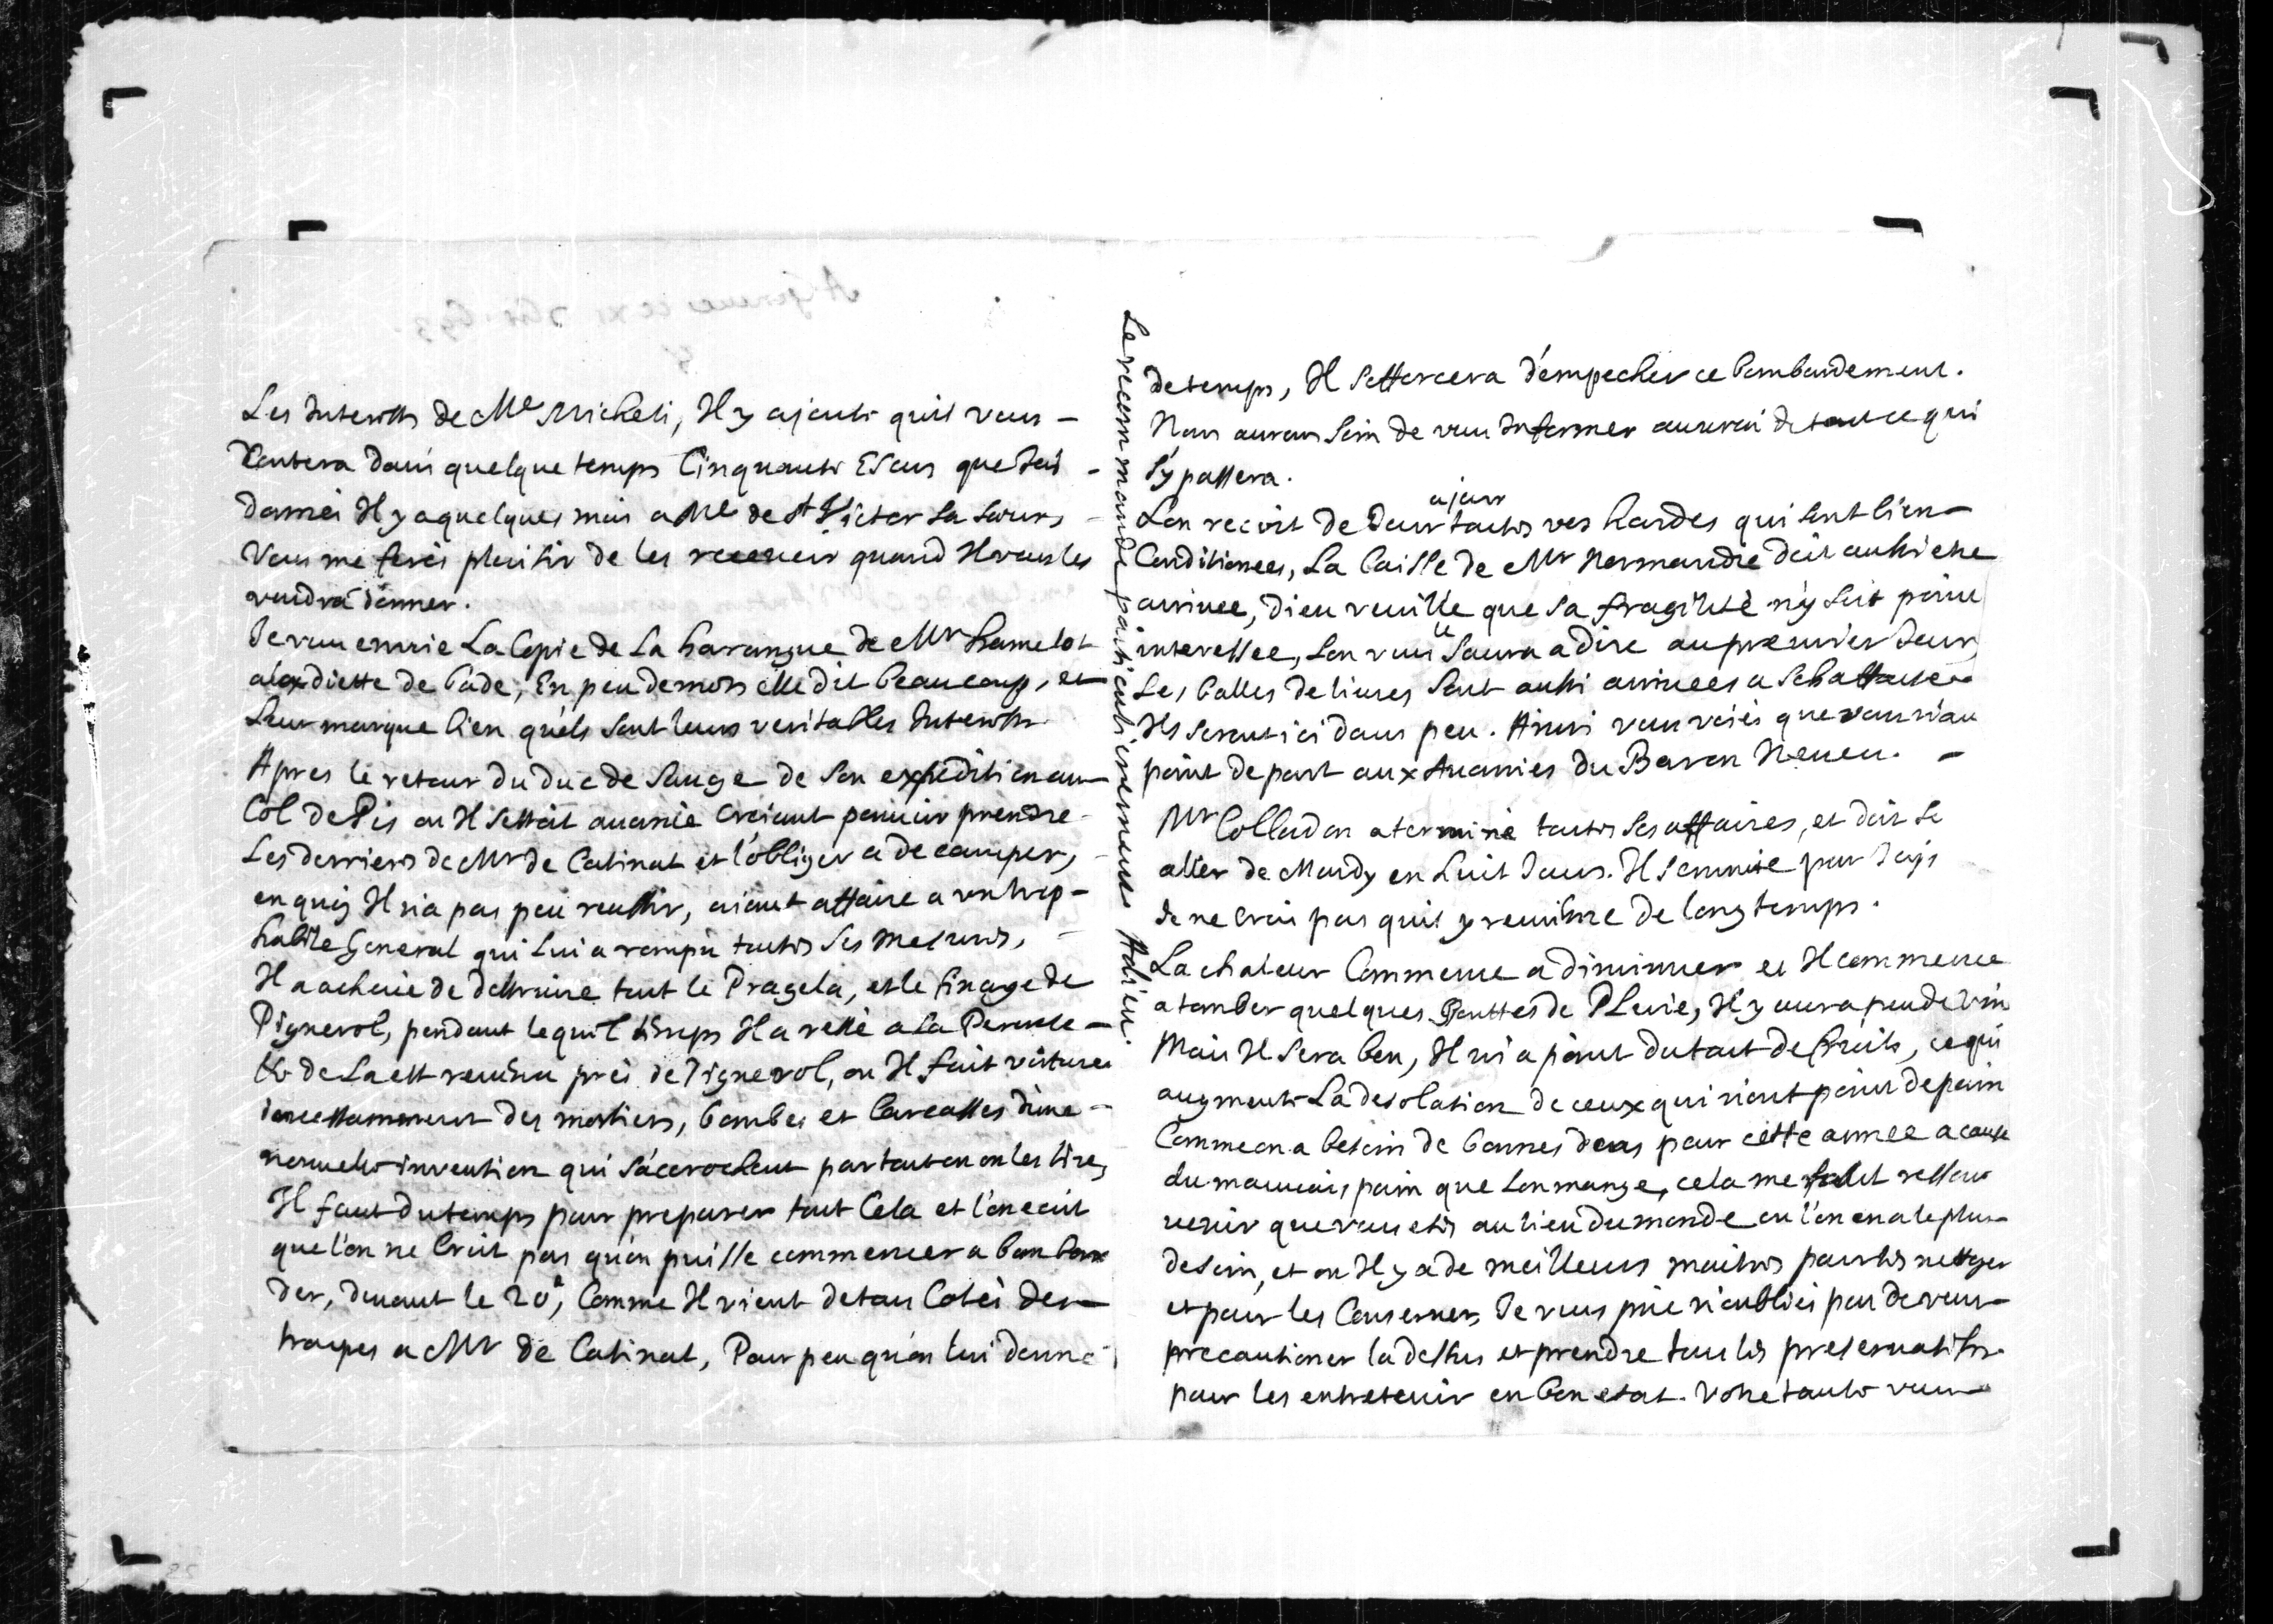 Les Interests de Mr Micheli, Il y ajoute quil vous
contera dans quelque temps Cinquante Escus que Jai
donnéi Il y a quelques mois a Me de St Victor Sa soeur,
Vous me ferés plaisir de les recevoir quand Il vous les
voudra donner.
Je vous envoie La Copie de La harangue de Mr hamelot
a la diette de bade, En peu de mots elle dit beaucoup, et
Leur marque bien quels sont leurs veritables Interests
Apres le retour du duc de Savoye de son expedition au
Col de Pis ou Il sestoit avancé croiant pouvoir prendre
Les derriers de Mr de Catinat et l'obliger a decamper,
en quoy Il n'a pas peu reussir, aiant affaire a un trop
habile General qui Lui a rompu toutes ses mesures,
Il a achevé de destruire tout le Pragela, et le finage de
Pignerol, pendant lequel temps Il a resté a La Perouse
& de La est revenu prés de Pignerol, ou Il fait voiturer
incessamment des mortiers, bombes et Carcasses d'une
nouvelle invention qui s'acrochent par tout ou on les tire,
Il faut du temps pour preparer tout Cela et l'on ecrit
que l'on ne Croit pas qu'on puisse commencer a bombar
der, devant le 20e, Comme Il vient de tous Cotéz des
troupes a Mr de Catinat, Pour peu qu'on lui donne
de temps, Il s'efforcera d'empecher ce bombardement.
Nous aurons soin de vous Informer au vrai de tout ce qui
s'y passera.
ajour
Lon recoit de Jour toutes vos hardes qui sont bien
Conditionees, La Caisse de Mr Normandie doit aussi etre
arrivee, Dieu veuille que sa fragilité n'y soit point
interessee, Lon vous Le saura a dire au premier Jour,
Les balles de livres sont aussi arrivees a Schaffouse
Ils seront ici dans peu. Ainsi vous voiés que vous n'au
point de part aux Avanies du Baron Neveu.
Mr Colladon a terminé toutes ses affaires, et doit s'e
aller de Mardy en huit Jours. Il s'ennuie
Je ne crois pas quil y revienne de long temps.
La chaleur Commence a diminuer et Il commence
a tomber quelques Gouttes de PLuie, Il y aura peu de vin
Mais Il sera bon, Il n'i a point du tout de fruits, ce qui
augmente La desolation de ceux qui n'ont point de pain
Comme on a besoin de bonnes dens pour cette annee a cause
du mauvais pain que Lon mange, cela me fait ressou
venir que vous etes au lieu du monde ou l'on en a le plus
de soin, et ou Il y a de meilleurs maitres pour les nettoyer
et pour les Conserver, Je vous prie n'oubliés pas de vous
precautioner la dessus et prendre tous les preservatifs
pour les entretenir en bon etat. Votre tante vous
Le recommande particulierement Adieu.